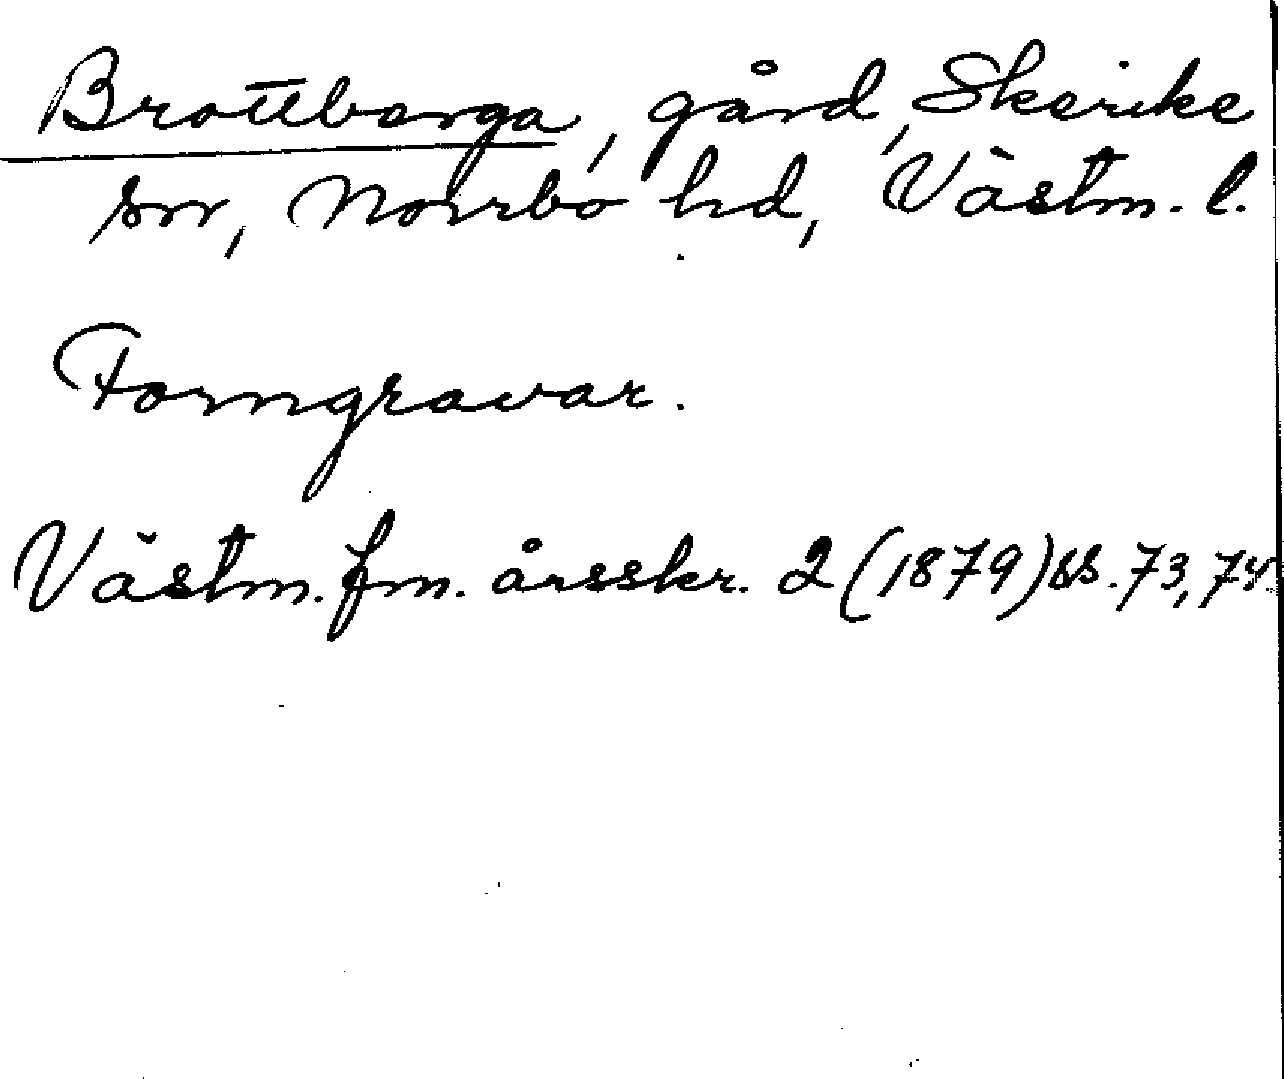 Brottberga, gård, Skerike
sn, Norrbo hd, Västm. l.
Forngravar.
Västm. fm. årsskr. 2 (1879) ss. 73, 74.